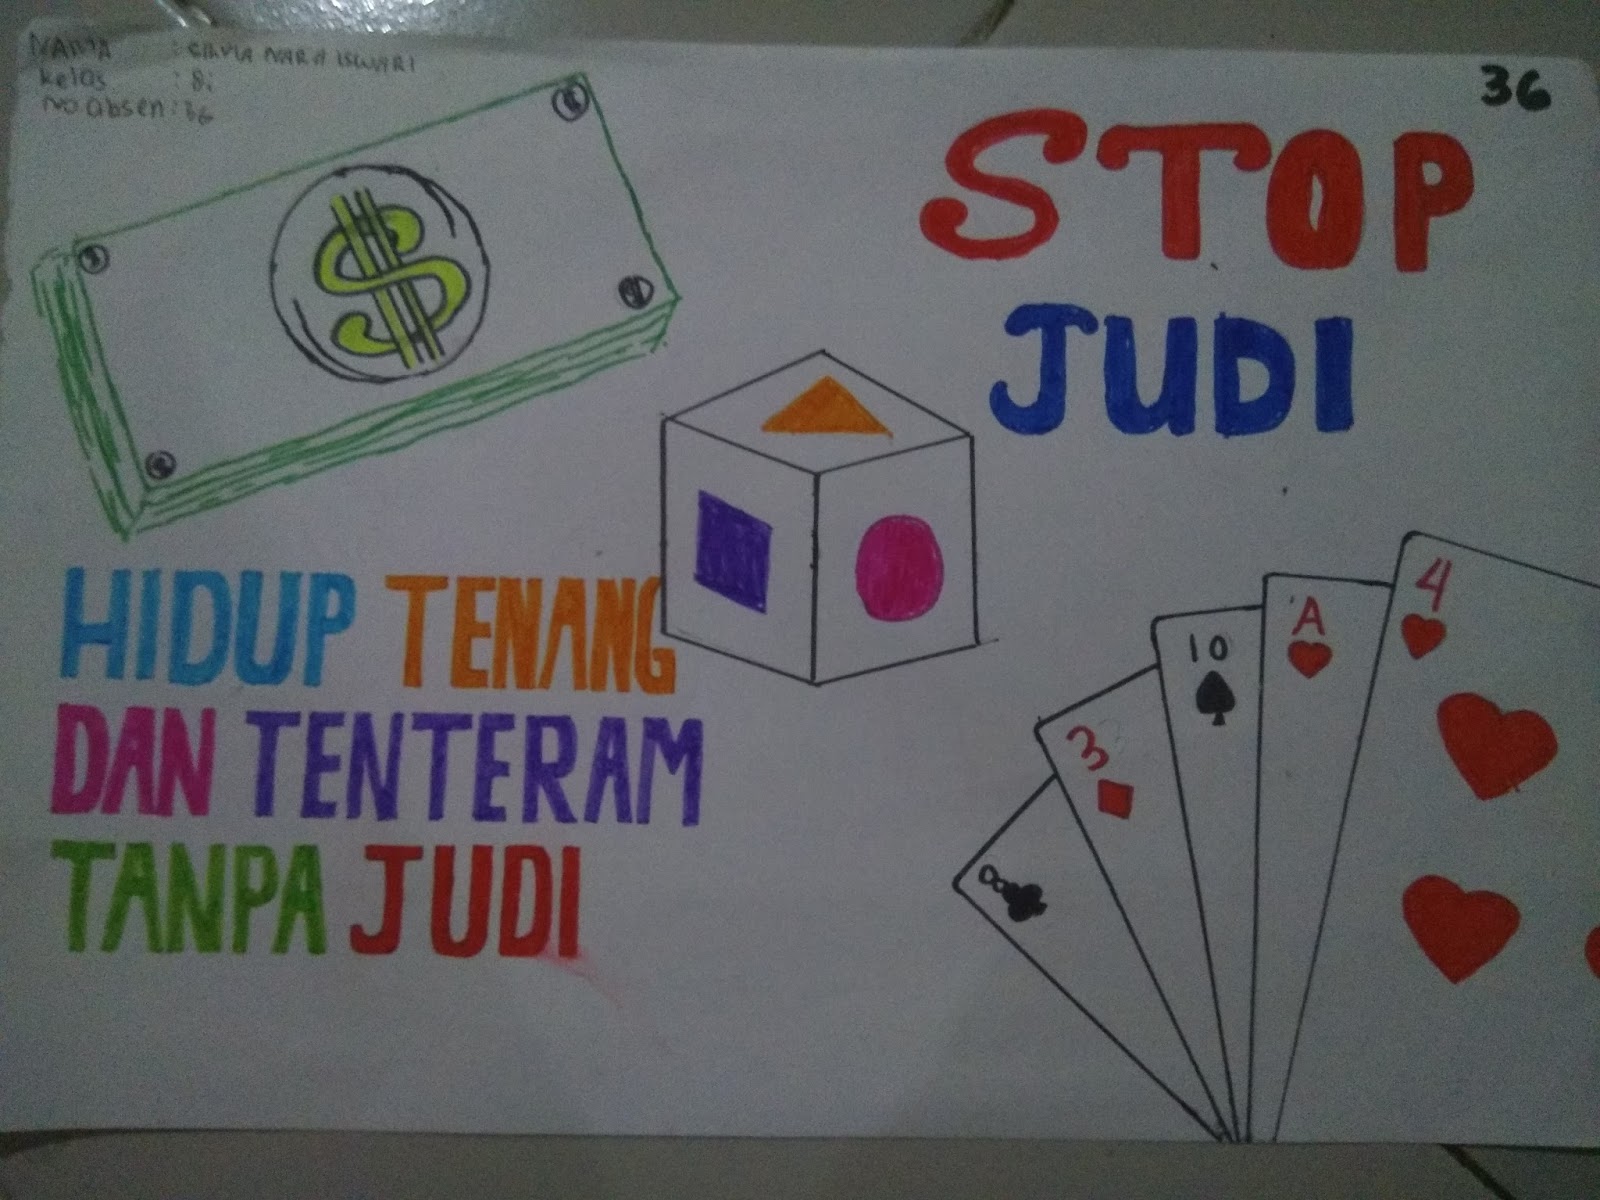 NAMA : SILVIA NARA ISWARI
kelas : 8i
No absen : 36
36
STOP
JUDI
HIDUP TENANG
DAN TENTERAM
TANPA JUDI
8
3
10
A
4